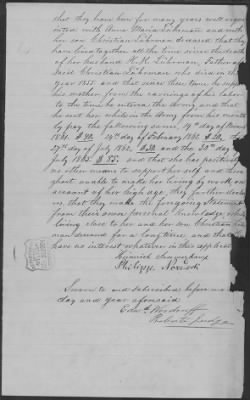 that they have been for many years well acqu
ainted with Anna Maria Liberman and with
her son Christian Liberman deceased that they
have lived together all the time since the death
of her husband H. H. Liberman Father of
said Christian Liberman who died in the
year 1855 and that since then he supported
his mother from the earnings of his labor
to the time he entered the army and that
he sent her while in the army from his month
ly pay the following sums, 19th day of
1861 $40. 14th day of February 1862 $20. The
27th day of July 1862 $30 and the 20th day
July 1863 $55. and that she has positively
no other means to support her self and through
out unable to make her living by work, on
account of her high age, they further
us, that they make the foregoing Statement
from their own personal Knowledge, while
living close to her and her son Christian
man deceased for a long time and that
have no interest whatever in this application
Heinrich
Philipp
Sworn to and subscribed before me
day and year aforesaid
Edw. Woodruff
Probate Judge